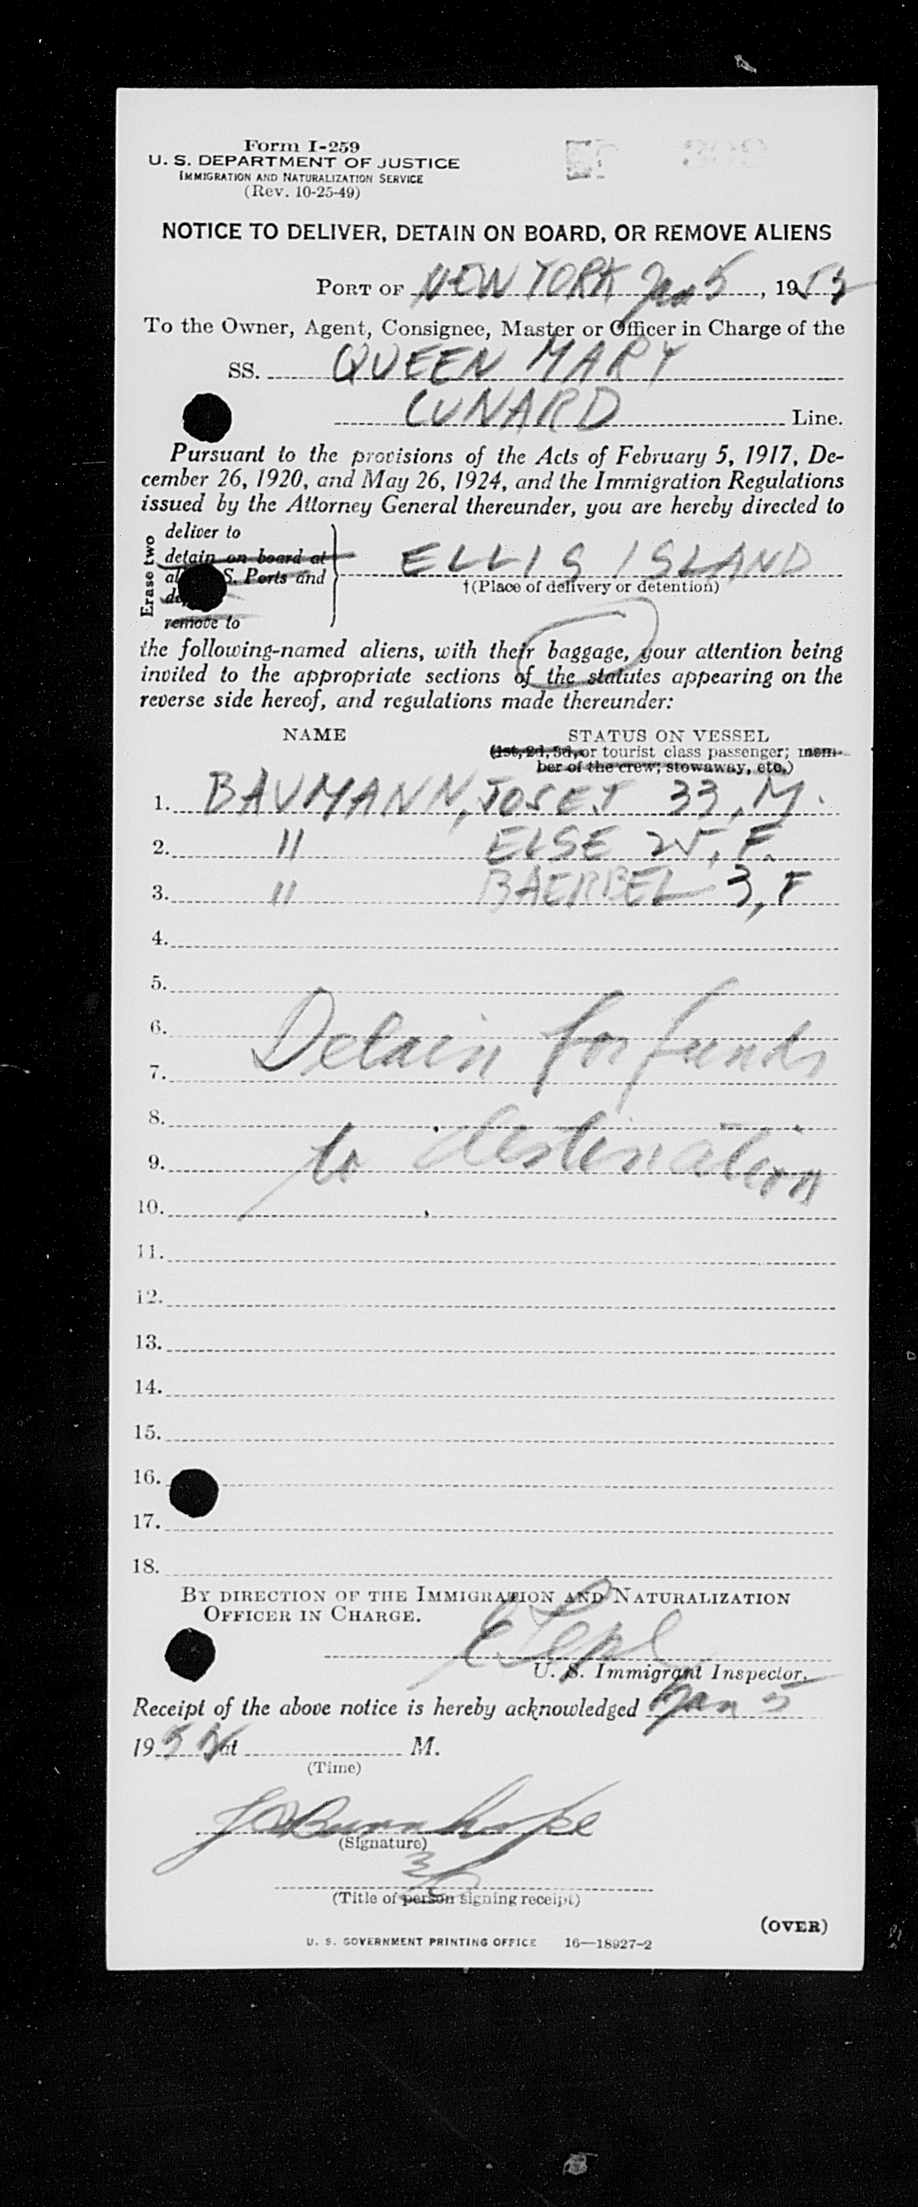 Form I-259
U. S. DEPARTMENT OF JUSTICE
IMMIGRATION AND NATURALIZATION SERVICE
(Rev. 10-25-49)
NOTICE TO DELIVER, DETAIN ON BOARD, OR REMOVE ALIENS
PORT OF NEW YORK Jan 5, 1953
To the Owner, Agent, Consignee, Master or Officer in Charge of the
SS. QUEEN MARY
CUNARD Line.
Pursuant to the provisions of the Acts of February 5, 1917, De-
cember 26, 1920, and May 26, 1924, and the Immigration Regulations
issued by the Attorney General thereunder, you are hereby directed to
Erase two
deliver to
detain on board at
S. Ports and
remove to
ELLIS ISLAND
†(Place of delivery or detention)
the following-named aliens, with their baggage, your attention being
invited to the appropriate sections of the statutes appearing on the
reverse side hereof, and regulations made thereunder:
NAME STATUS ON VESSEL
(1st, 2d, 3d, or tourist class passenger; mem-
ber of the crew; stowaway, etc.)
1. BAUMANN, JOSEF 33, M.
2. " ELSE 25, F.
3. " BAERBEL 3, F
4.
5.
6. Detain for funds
7.
8.
9. to destination
10.
11.
12.
13.
14.
15.
16.
17.
18.
BY DIRECTION OF THE IMMIGRATION AND NATURALIZATION
OFFICER IN CHARGE.
U. S. Immigrant Inspector.
Receipt of the above notice is hereby acknowledged Jan 5
195 at M.
(Time)
(Signature)
(Title of person signing receipt)
(OVER)
U. S. GOVERNMENT PRINTING OFFICE 16—18927-2